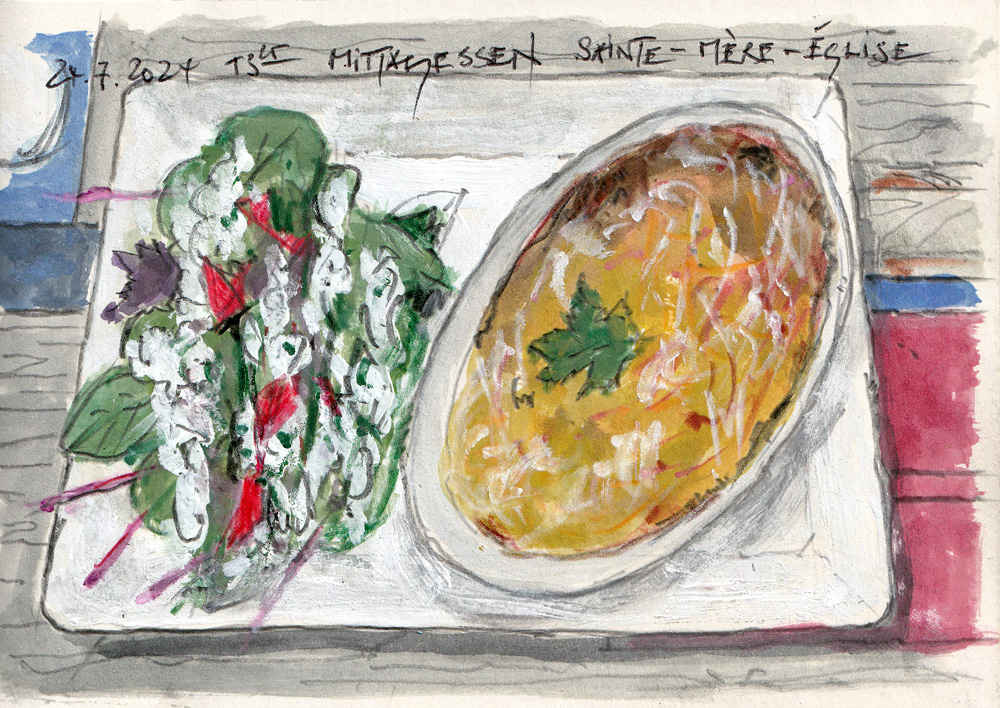 24.7.2024 13ʰ MITTAGESSEN SAINTE-MÈRE-ÉGLISE